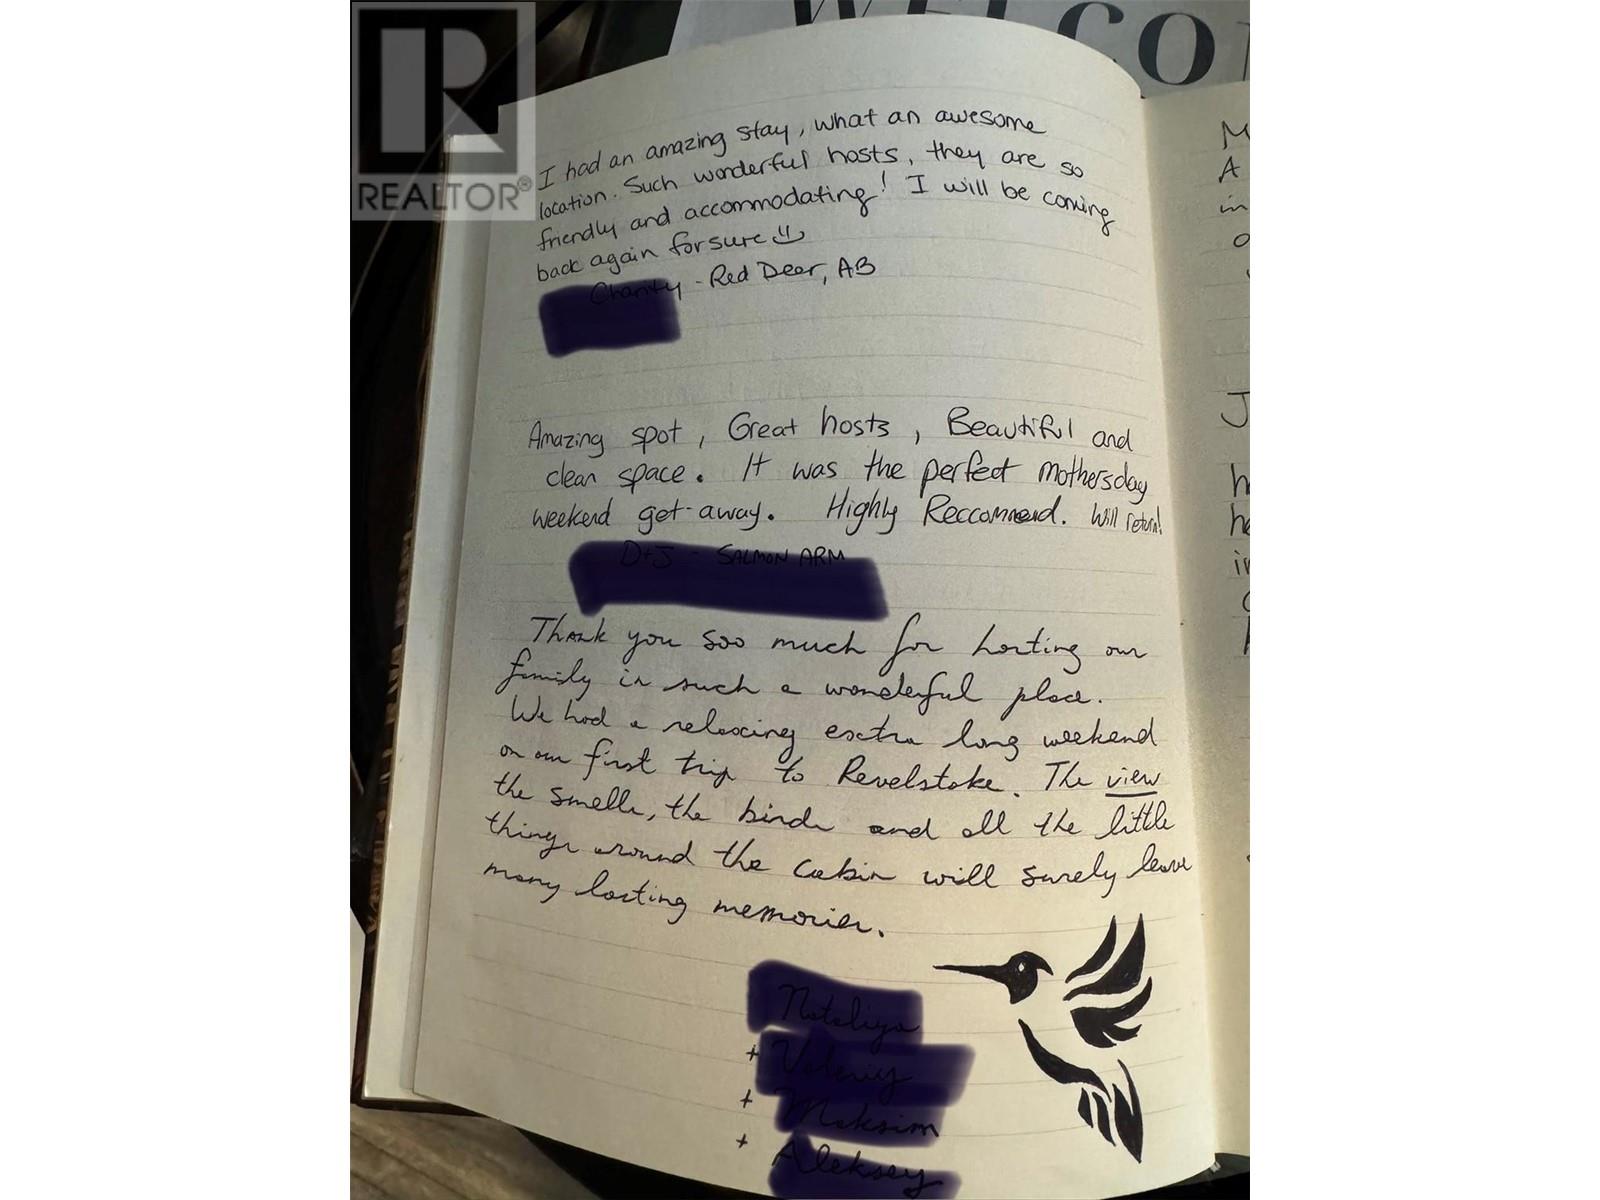 WELCO
REALTOR®
I had an amazing stay, what an awesome
location. Such wonderful hosts, they are so
friendly and accommodating! I will be coming
back again for sure
Charity - Red Deer, AB
Amazing spot, Great hosts, Beautiful and
clean space. It was the perfect mothersday
weekend get-away. Highly Reccommend. Will return!
D+J - SALMON ARM
Thank you soo much for hosting our
family in such a wonderful place.
We had a relaxing extra long weekend
on our first trip to Revelstoke. The view
the smells, the birds and all the little
things around the cabin will surely leave
many lasting memories.
Nataliya
+ Valeriy
+ Maksim
+ Aleksey
M
A
in
J
h
he
in